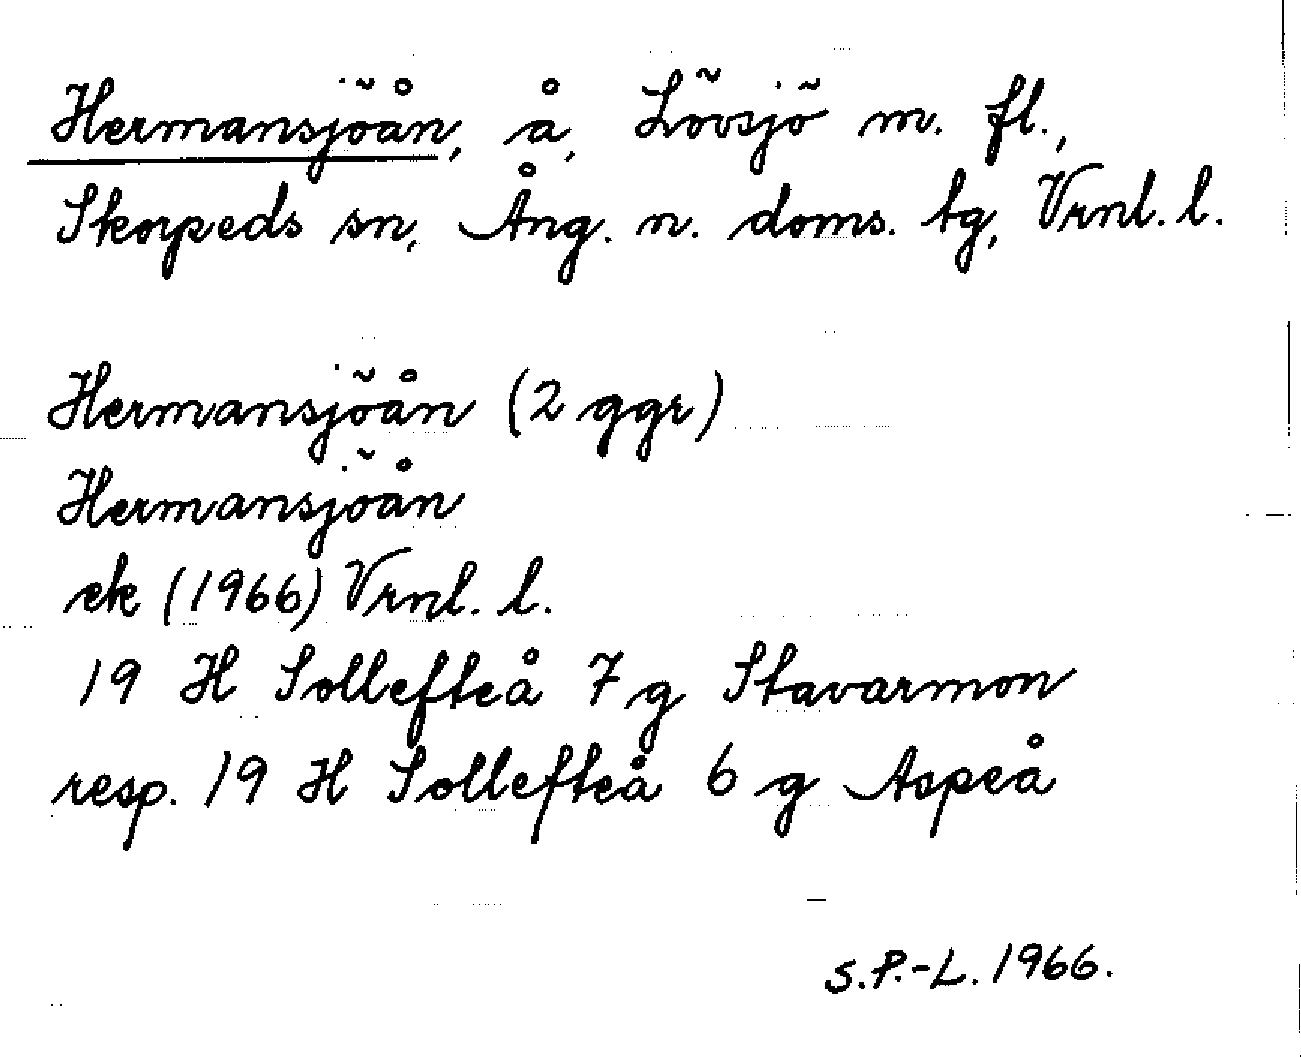 Hermansjöån, å, Lövsjö m. fl.,
Skorpeds sn, Ång. n. doms. tg, Vrnl. l.
Hermansjöån (2 ggr)
Hermansjöån
ek (1966) Vrnl. l.
19 H Sollefteå 7 g Stavarmon
resp. 19 H Sollefteå 6 g Aspeå
S.P.-L. 1966.